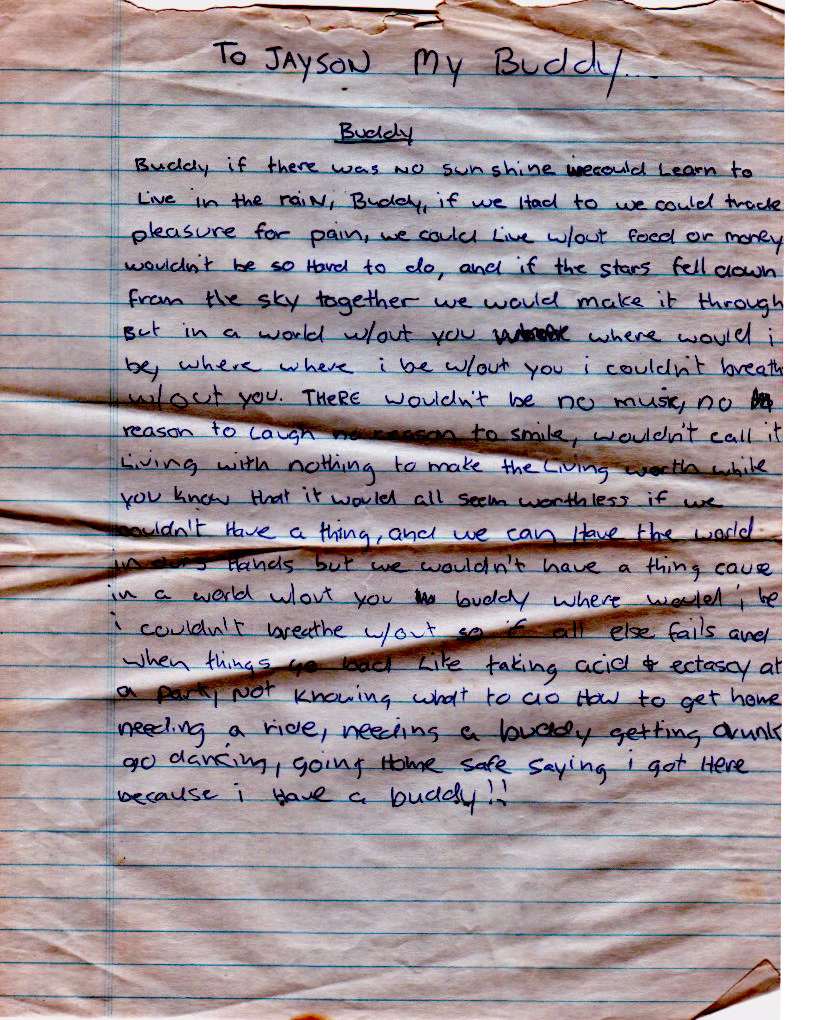 To JAYSON My Buddy...
Buddy
Buddy if there was no sunshine wecould Learn to
Live in the rain, Buddy, if we Had to we could trade
pleasure for pain, we could Live w/out food or money
wouldn't be so Hard to do, and if the stars fell down
from the sky together we would make it through
But in a world w/out you where would i
be, where where i be w/out you i couldn't breath
w/out you. THERE wouldn't be no music, no
reason to Laugh no reason to smile, wouldn't call it
Living with nothing to make the Living worth while
you know that it would all seem worthless if we
couldn't Have a thing, and we can Have the world
in ours Hands but we wouldn't have a thing cause
in a world w/out you buddy where would i be
i couldn't breathe w/out so if all else fails and
when things go bad Like taking acid & ectascy at
a party Not knowing what to do How to get home
needing a ride, needing a buddy getting drunk
go dancing, going Home safe saying i got Here
because i Have a buddy!!